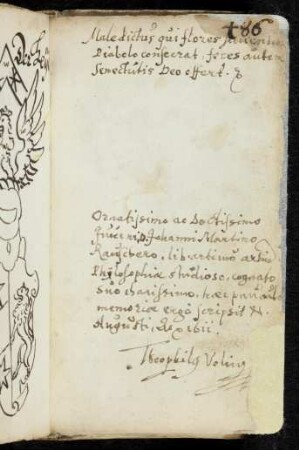 186
Maledictus qui flores juventutis
Diabolo consecrat, feces autem
Senectutis Deo offert.
Ornatissimo ac Doctissimo
Juveni D. Johanni Martino
libertinus artium
Philosophiæ studioso, cognato
suo charissimo, hæc pauca
memoriæ ergo scripsit
Augusti,
Theophilus